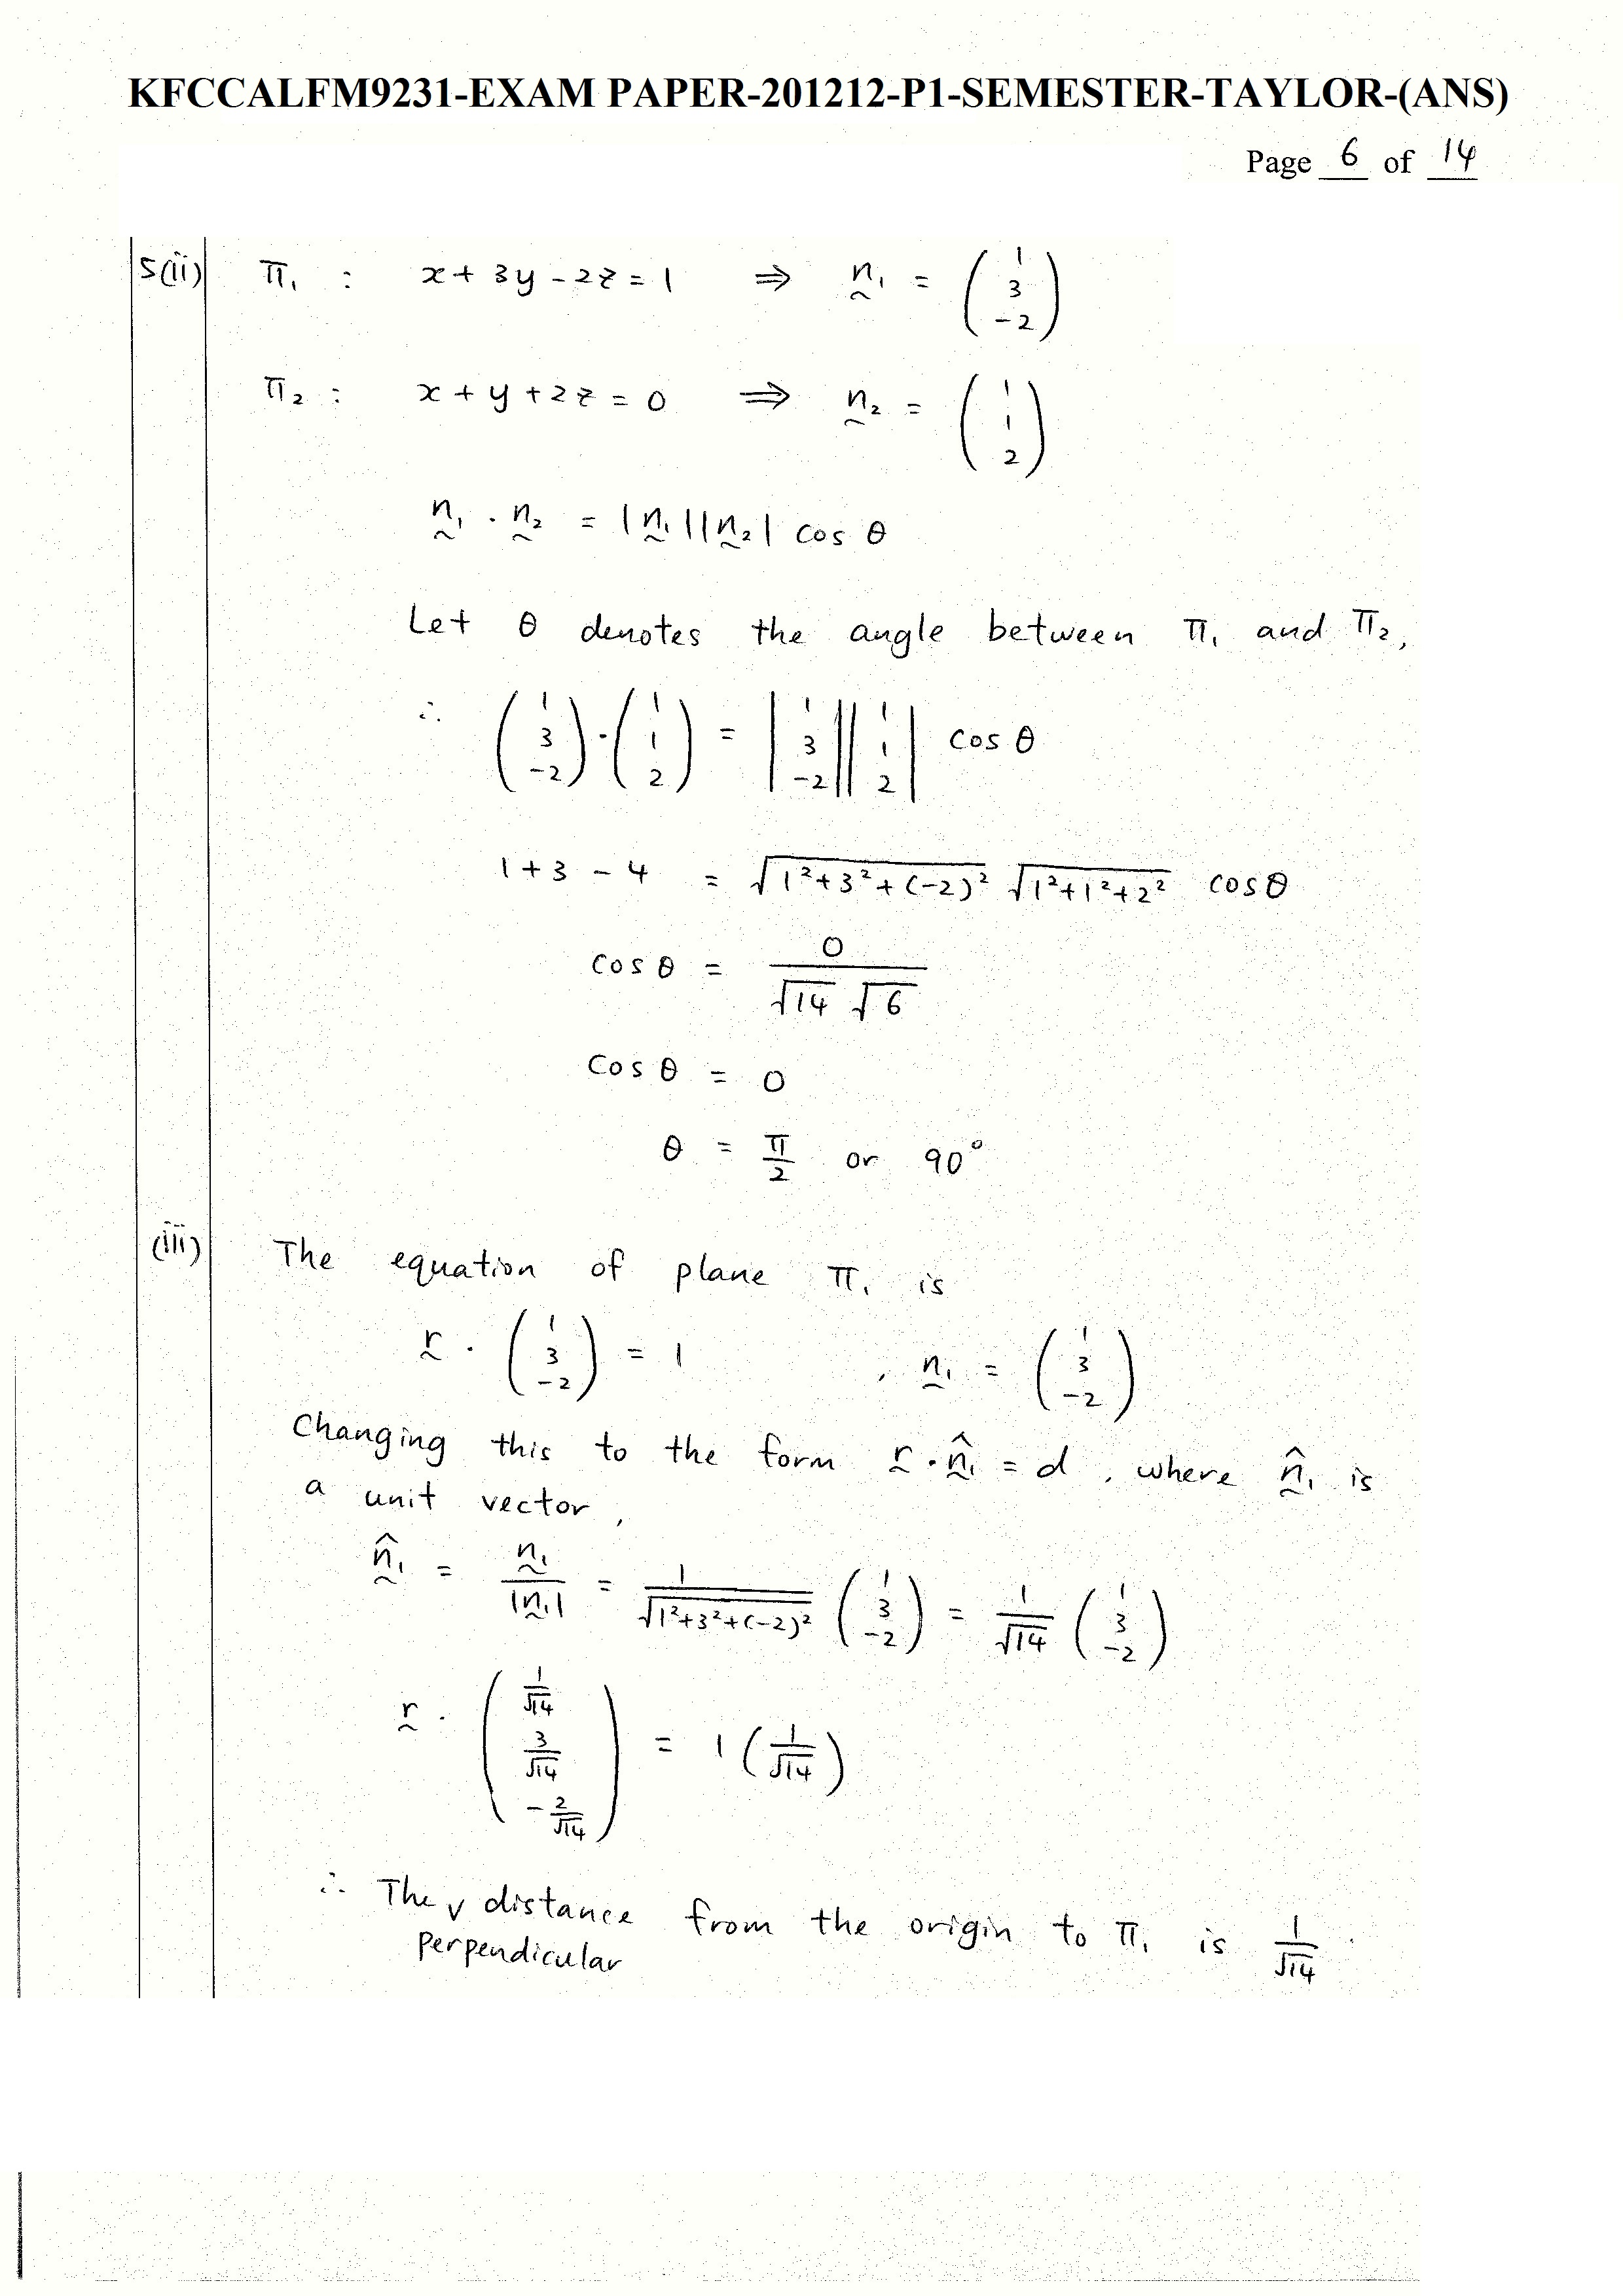 KFCCALFM9231-EXAM PAPER-201212-P1-SEMESTER-TAYLOR-(ANS)
Page 6 of 14
5(ii) π₁ : x + 3y - 2z = 1 ⇒ n₁ = (1 3 -2)
π₂ : x + y + 2z = 0 ⇒ n₂ = (1 1 2)
n₁ · n₂ = |n₁||n₂| cos θ
Let θ denotes the angle between π₁ and π₂,
∴ (1 3 -2) · (1 1 2) = |1 3 -2||1 1 2| cos θ
1 + 3 - 4 = √(1²+3²+(-2)²) √(1²+1²+2²) cos θ
cos θ = 0/(√14 √6)
cos θ = 0
θ = π/2 or 90°
(iii) The equation of plane π₁ is
r · (1 3 -2) = 1 , n₁ = (1 3 -2)
Changing this to the form r · n̂₁ = d , where n̂₁ is
a unit vector,
n̂₁ = n₁/|n₁| = 1/√(1²+3²+(-2)²) (1 3 -2) = 1/√14 (1 3 -2)
r · (1/√14 3/√14 -2/√14) = 1 (1/√14)
∴ The perpendicular distance from the origin to π₁ is 1/√14 .